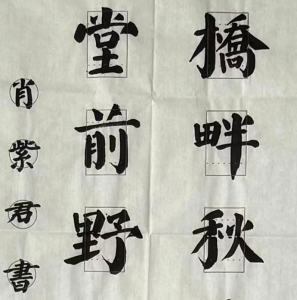 橋畔秋
堂前野
肖紫君書